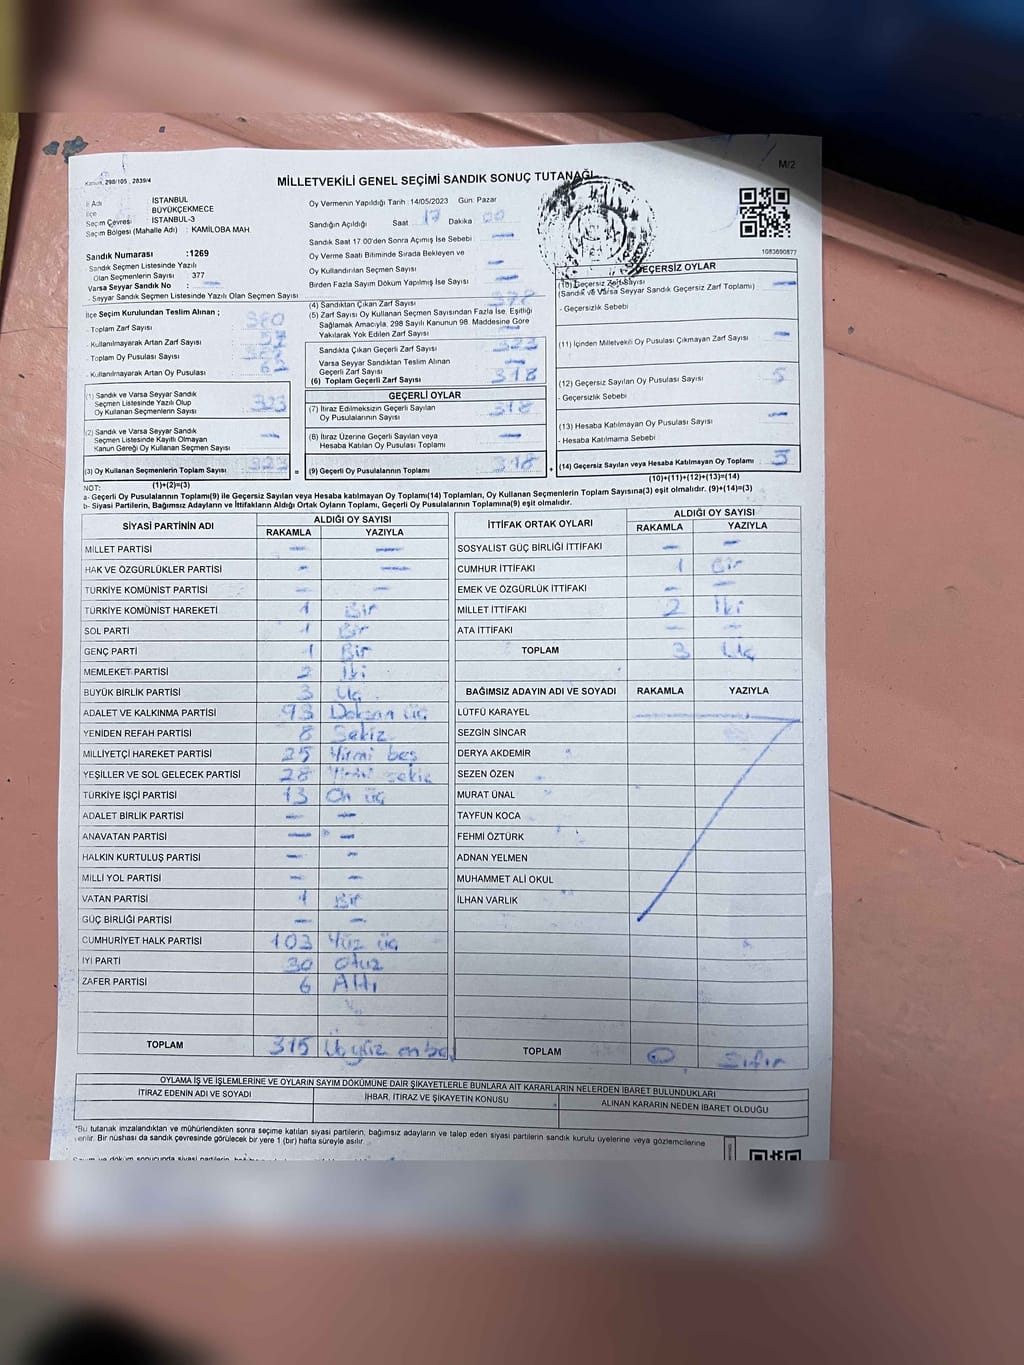 M/2
Kanun, 298/105 , 2839/4
MİLLETVEKİLİ GENEL SEÇİMİ SANDIK SONUÇ TUTANAĞI
İl Adı : İSTANBUL
İlçe : BÜYÜKÇEKMECE
Seçim Çevresi : İSTANBUL-3
Seçim Bölgesi (Mahalle Adı) : KAMİLOBA MAH.
Sandık Numarası :1269
- Sandık Seçmen Listesinde Yazılı
Olan Seçmenlerin Sayısı : 377
Varsa Seyyar Sandık No : —
- Seyyar Sandık Seçmen Listesinde Yazılı Olan Seçmen Sayısı
İlçe Seçim Kurulundan Teslim Alınan ;
- Toplam Zarf Sayısı 380
- Kullanılmayarak Artan Zarf Sayısı 57
- Toplam Oy Pusulası Sayısı
- Kullanılmayarak Artan Oy Pusulası
(1) Sandık ve Varsa Seyyar Sandık
Seçmen Listesinde Yazılı Olup
Oy Kullanan Seçmenlerin Sayısı 323
(2) Sandık ve Varsa Seyyar Sandık
Seçmen Listesinde Kayıtlı Olmayan
Kanun Gereği Oy Kullanan Seçmen Sayısı —
(3) Oy Kullanan Seçmenlerin Toplam Sayısı 323
(1)+(2)=(3)
Oy Vermenin Yapıldığı Tarih :14/05/2023 Gün: Pazar
Sandığın Açıldığı Saat 17 Dakika 00
Sandık Saat 17:00'den Sonra Açımış İse Sebebi —
Oy Verme Saati Bitiminde Sırada Bekleyen ve
Oy Kullandırılan Seçmen Sayısı —
Birden Fazla Sayım Döküm Yapılmış İse Sayısı —
(4) Sandıktan Çıkan Zarf Sayısı
(5) Zarf Sayısı Oy Kullanan Seçmen Sayısından Fazla İse, Eşitliği
Sağlamak Amacıyla, 298 Sayılı Kanunun 98. Maddesine Göre
Yakılarak Yok Edilen Zarf Sayısı —
Sandıkta Çıkan Geçerli Zarf Sayısı 323
Varsa Seyyar Sandıktan Teslim Alınan
Geçerli Zarf Sayısı —
(6) Toplam Geçerli Zarf Sayısı 318
GEÇERLİ OYLAR
(7) İtiraz Edilmeksizin Geçerli Sayılan
Oy Pusulalarının Sayısı 318
(8) İtiraz Üzerine Geçerli Sayılan veya
Hesaba Katılan Oy Pusulası Toplamı —
(9) Geçerli Oy Pusulalarının Toplamı 318
1083690877
GEÇERSİZ OYLAR
(10) Geçersiz Zarf Sayısı
(Sandık ve Varsa Seyyar Sandık Geçersiz Zarf Toplamı) —
- Geçersizlik Sebebi
(11) İçinden Milletvekili Oy Pusulası Çıkmayan Zarf Sayısı —
(12) Geçersiz Sayılan Oy Pusulası Sayısı 5
- Geçersizlik Sebebi
(13) Hesaba Katılmayan Oy Pusulası Sayısı —
- Hesaba Katılmama Sebebi
(14) Geçersiz Sayılan veya Hesaba Katılmayan Oy Toplamı 5
(10)+(11)+(12)+(13)=(14)
NOT:
a- Geçerli Oy Pusulalarının Toplamı(9) ile Geçersiz Sayılan veya Hesaba katılmayan Oy Toplamı(14) Toplamları, Oy Kullanan Seçmenlerin Toplam Sayısına(3) eşit olmalıdır. (9)+(14)=(3)
b- Siyasi Partilerin, Bağımsız Adayların ve İttifakların Aldığı Ortak Oyların Toplamı, Geçerli Oy Pusulalarının Toplamına(9) eşit olmalıdır.
SİYASİ PARTİNİN ADI ALDIĞI OY SAYISI
RAKAMLA YAZIYLA
MİLLET PARTİSİ — —
HAK VE ÖZGÜRLÜKLER PARTİSİ — —
TÜRKİYE KOMÜNİST PARTİSİ — —
TÜRKİYE KOMÜNİST HAREKETİ 1 Bir
SOL PARTİ 1 Bir
GENÇ PARTİ 1 Bir
MEMLEKET PARTİSİ 2 İki
BÜYÜK BİRLİK PARTİSİ 3 Üç
ADALET VE KALKINMA PARTİSİ 93 Doksan üç
YENİDEN REFAH PARTİSİ 8 Sekiz
MİLLİYETÇİ HAREKET PARTİSİ 25 Yirmi beş
YEŞİLLER VE SOL GELECEK PARTİSİ 28 Yirmi sekiz
TÜRKİYE İŞÇİ PARTİSİ 13 On üç
ADALET BİRLİK PARTİSİ — —
ANAVATAN PARTİSİ — —
HALKIN KURTULUŞ PARTİSİ — —
MİLLİ YOL PARTİSİ — —
VATAN PARTİSİ 1 Bir
GÜÇ BİRLİĞİ PARTİSİ — —
CUMHURİYET HALK PARTİSİ 103 Yüz üç
İYİ PARTİ 30 Otuz
ZAFER PARTİSİ 6 Altı
TOPLAM 315 Üçyüz on beş
İTTİFAK ORTAK OYLARI ALDIĞI OY SAYISI
RAKAMLA YAZIYLA
SOSYALİST GÜÇ BİRLİĞİ İTTİFAKI — —
CUMHUR İTTİFAKI 1 Bir
EMEK VE ÖZGÜRLÜK İTTİFAKI — —
MİLLET İTTİFAKI 2 İki
ATA İTTİFAKI — —
TOPLAM 3 Üç
BAĞIMSIZ ADAYIN ADI VE SOYADI RAKAMLA YAZIYLA
LÜTFÜ KARAYEL
SEZGİN SİNCAR
DERYA AKDEMİR
SEZEN ÖZEN
MURAT ÜNAL
TAYFUN KOCA
FEHMİ ÖZTÜRK
ADNAN YELMEN
MUHAMMET ALİ OKUL
İLHAN VARLIK
TOPLAM 0 Sıfır
OYLAMA İŞ VE İŞLEMLERİNE VE OYLARIN SAYIM DÖKÜMÜNE DAİR ŞİKAYETLERLE BUNLARA AİT KARARLARIN NELERDEN İBARET BULUNDUKLARI
İTİRAZ EDENİN ADI VE SOYADI İHBAR, İTİRAZ VE ŞİKAYETİN KONUSU ALINAN KARARIN NEDEN İBARET OLDUĞU
*Bu tutanak imzalandıktan ve mühürlendikten sonra seçime katılan siyasi partilerin, bağımsız adayların ve talep eden siyasi partilerin sandık kurulu üyelerine veya gözlemcilerine
verilir. Bir nüshası da sandık çevresinde görülecek bir yere 1 (bir) hafta süreyle asılır.